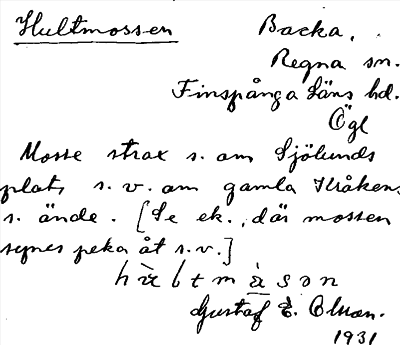 Hultmossen Backa,
Regna sn.
Finspånga läns hd.
Ögl
Mosse strax s. om Sjölunds
plats s.v. om gamla Kråkens
s. ände. [Se ek., där mossen
synes peka åt s.v.]
Gustaf E. Olson.
1931